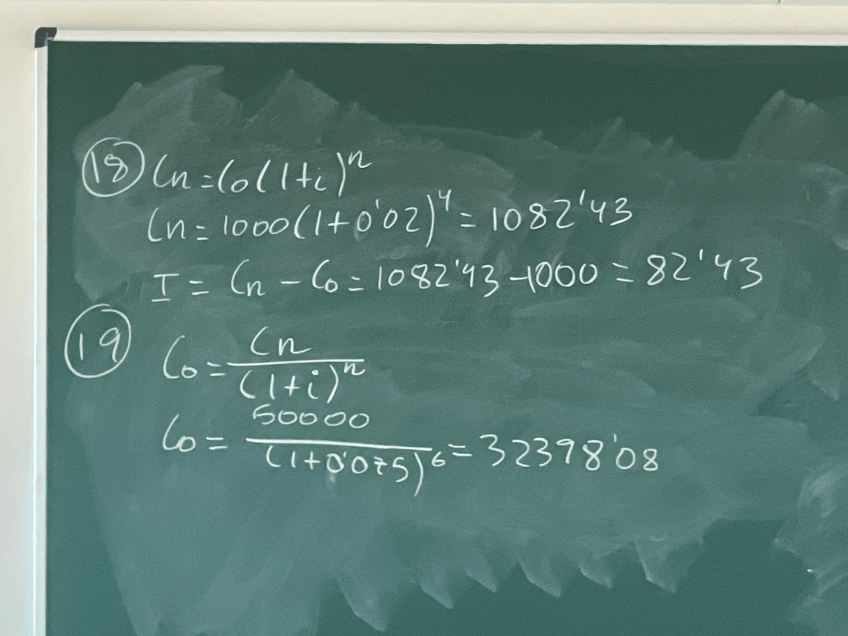 18 Cn = Co(1+i)^n
Cn = 1000(1+0'02)^4 = 1082'43
I = Cn - Co = 1082'43 - 1000 = 82'43
19 Co = Cn / (1+i)^n
Co = 50000 / (1+0'075)^6 = 32398'08